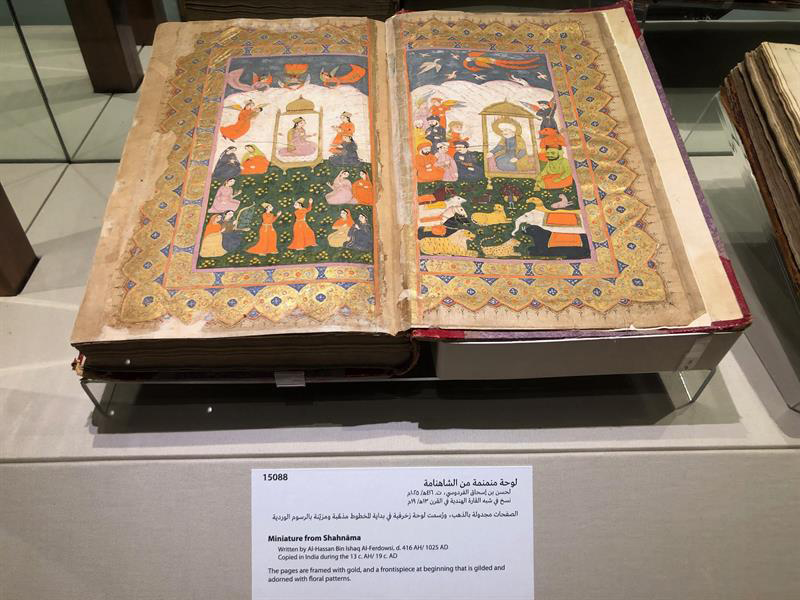 15088
لوحة منمنمة من الشاهنامة
لحسن بن إسحاق الفردوسي، ت. ٤١٦هـ/ ١٠٢٥م
نسخ في شبه القارة الهندية في القرن ١٣هـ/ ١٩م
الصفحات مجدولة بالذهب، ورُسمت لوحة زخرفية في بداية المخطوط مذهّبة ومزيّنة بالرسوم الوردية
Miniature from Shahnāma
Written by Al-Hassan Bin Ishaq Al-Ferdowsi, d. 416 AH/ 1025 AD
Copied in India during the 13 c. AH/ 19 c. AD
The pages are framed with gold, and a frontispiece at beginning that is gilded and
adorned with floral patterns.